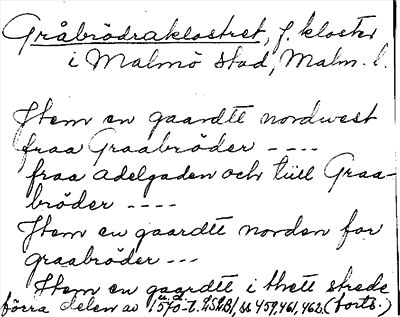 Gråbrödraklostret, f. kloster
i Malmö stad, Malm. l.
Item en gaardtt nordwest
fraa Graabrøder ----
fraa adelgaden och tiill Graa-
brøder ----
Item en gaardtt norden for
graabrøder ---
Item en gaardtt i thett strede
förra delen av 1570-t. LSLB1, ss 459, 461, 462. (forts.)